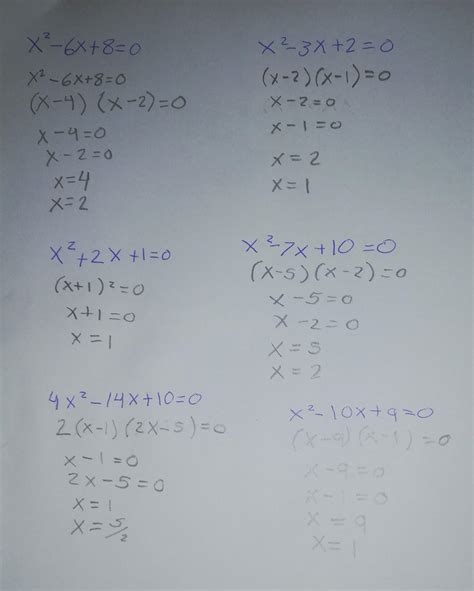 x²-6x+8=0
x²-6x+8=0
(x-4) (x-2)=0
x-4=0
x-2=0
x=4
x=2
x²-3x+2=0
(x-2)(x-1)=0
x-2=0
x-1=0
x=2
x=1
x²+2x+1=0
(x+1)²=0
x+1=0
x=1
x²-7x+10=0
(x-5)(x-2)=0
x-5=0
x-2=0
x=5
x=2
4x²-14x+10=0
2(x-1)(2x-5)=0
x-1=0
2x-5=0
x=1
x=5/2
x²-10x+9=0
(x-9)(x-1)=0
x-9=0
x-1=0
x=9
x=1